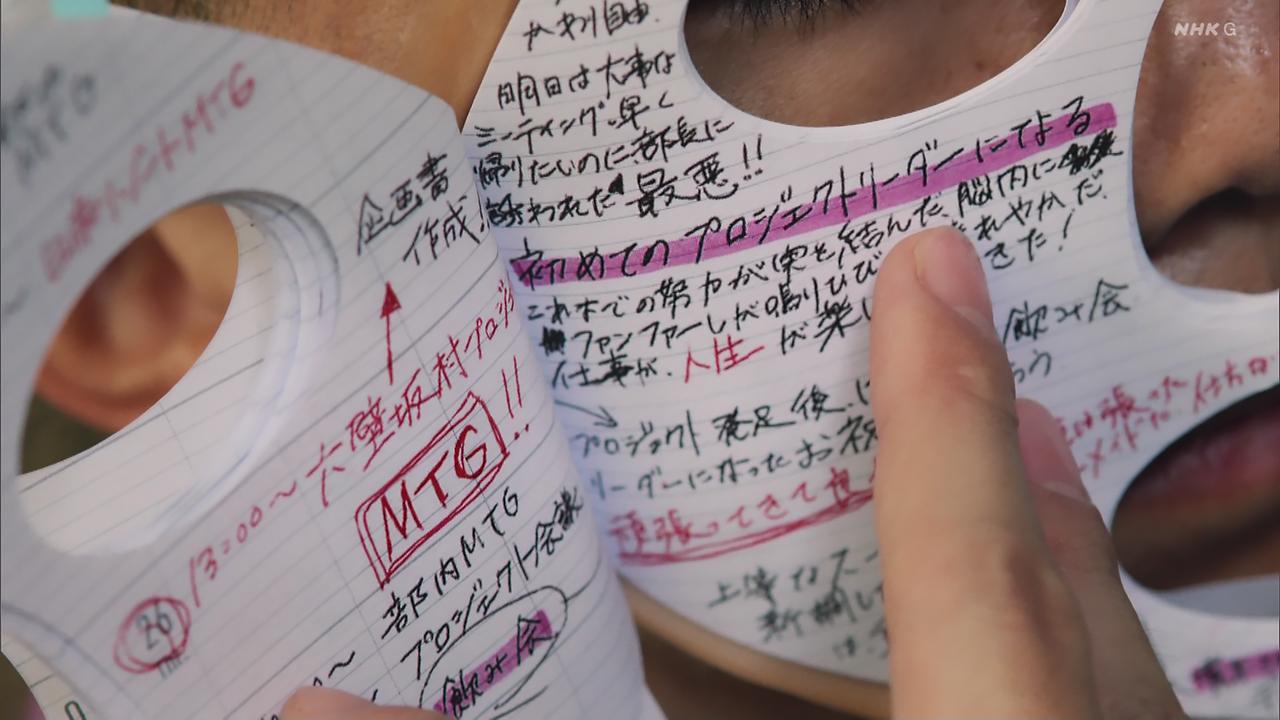 NHK G
企画書
作成!
13:00〜六壁坂村プロジ
MTG!!
26
部内MTG
プロジェクト会議
飲み会
かわり自由.
明日は大事な
ミーティング.早く
帰りたいのに部長に
誘われた 最悪!!
初めてのプロジェクトリーダーになる
これまでの努力が実を結んだ.脳内に
ファンファーレが鳴りひび れやかだ.
仕事が.人生が楽し きた!
飲み会
プロジェクト発足後.
リーダーになったお祝
頑張ってきて良
上等なスー
新調し